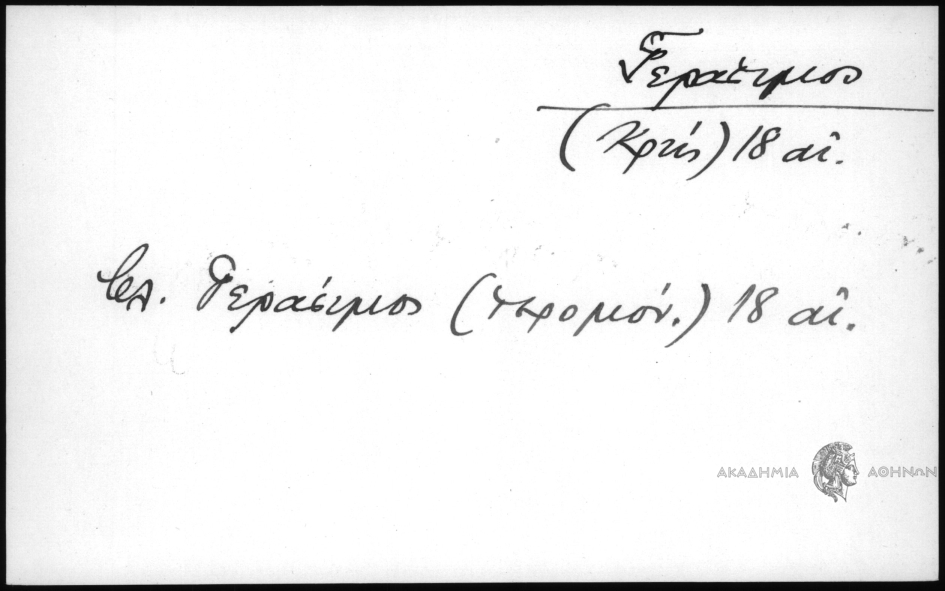 Γεράσιμος
(Κρής) 18 αἰ.
βλ. Γεράσιμος (ἱερομόν.) 18 αἰ.
ΑΚΑΔΗΜΙΑ ΑΘΗΝΩΝ